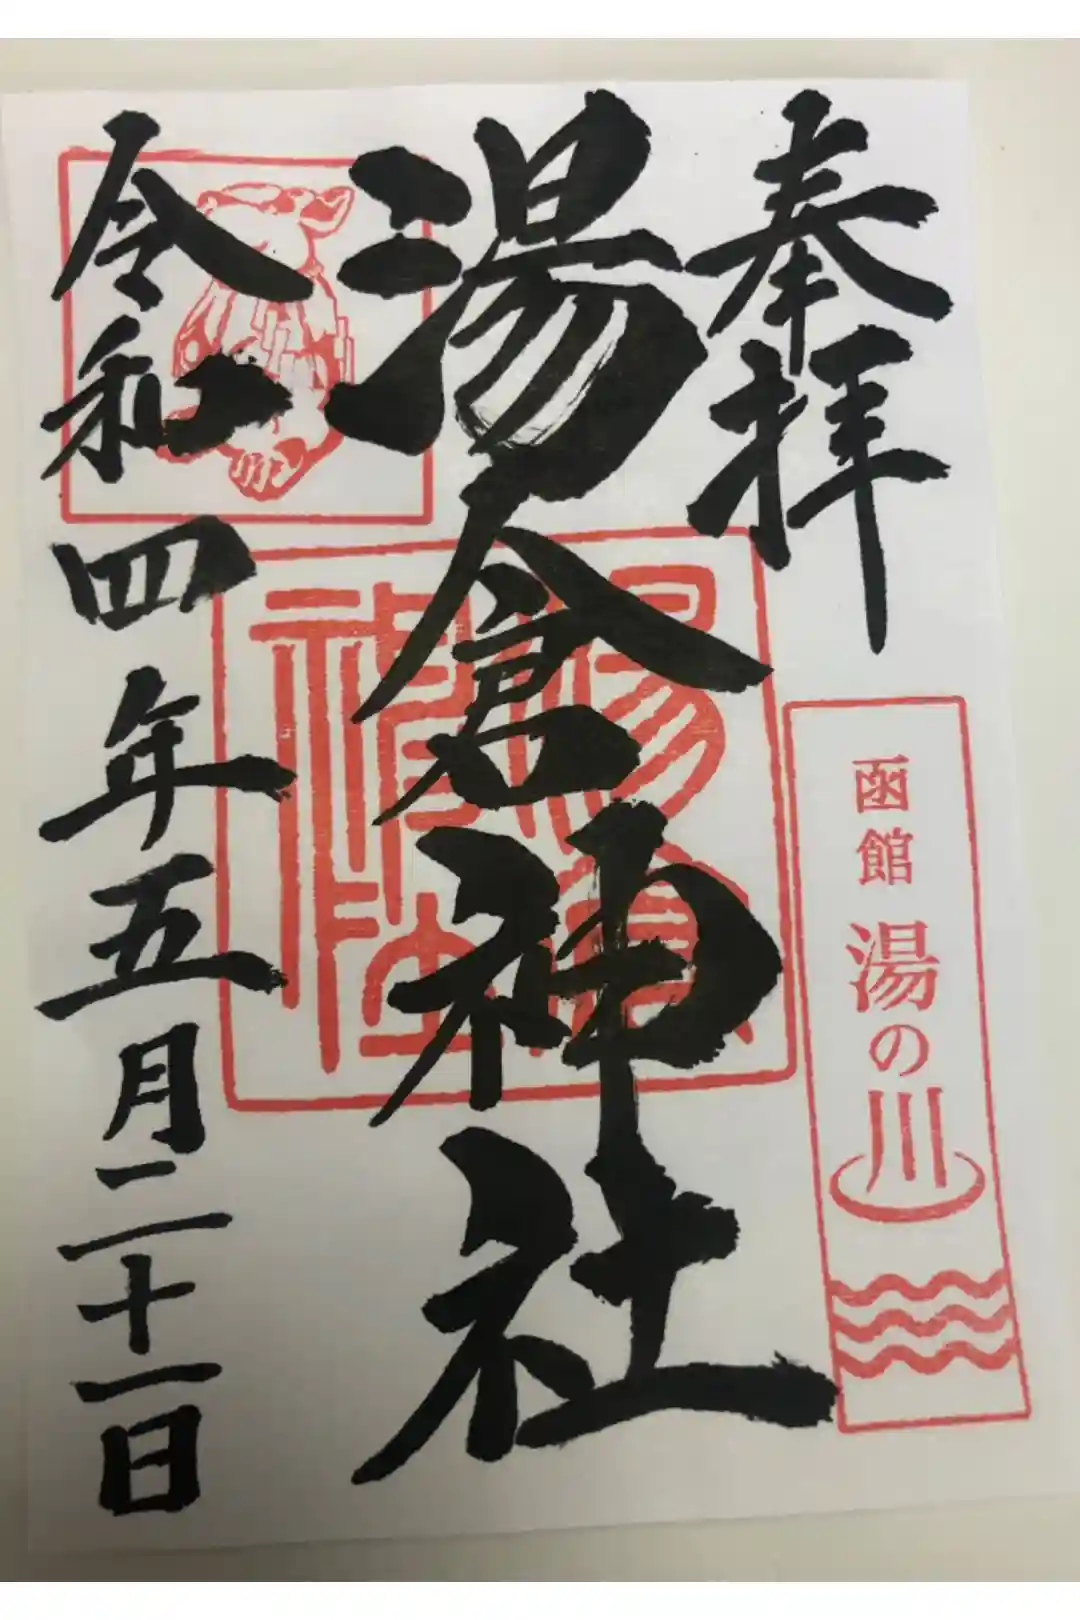 奉拝
函館 湯の川
湯倉神社
湯倉神社
令和四年五月二十一日